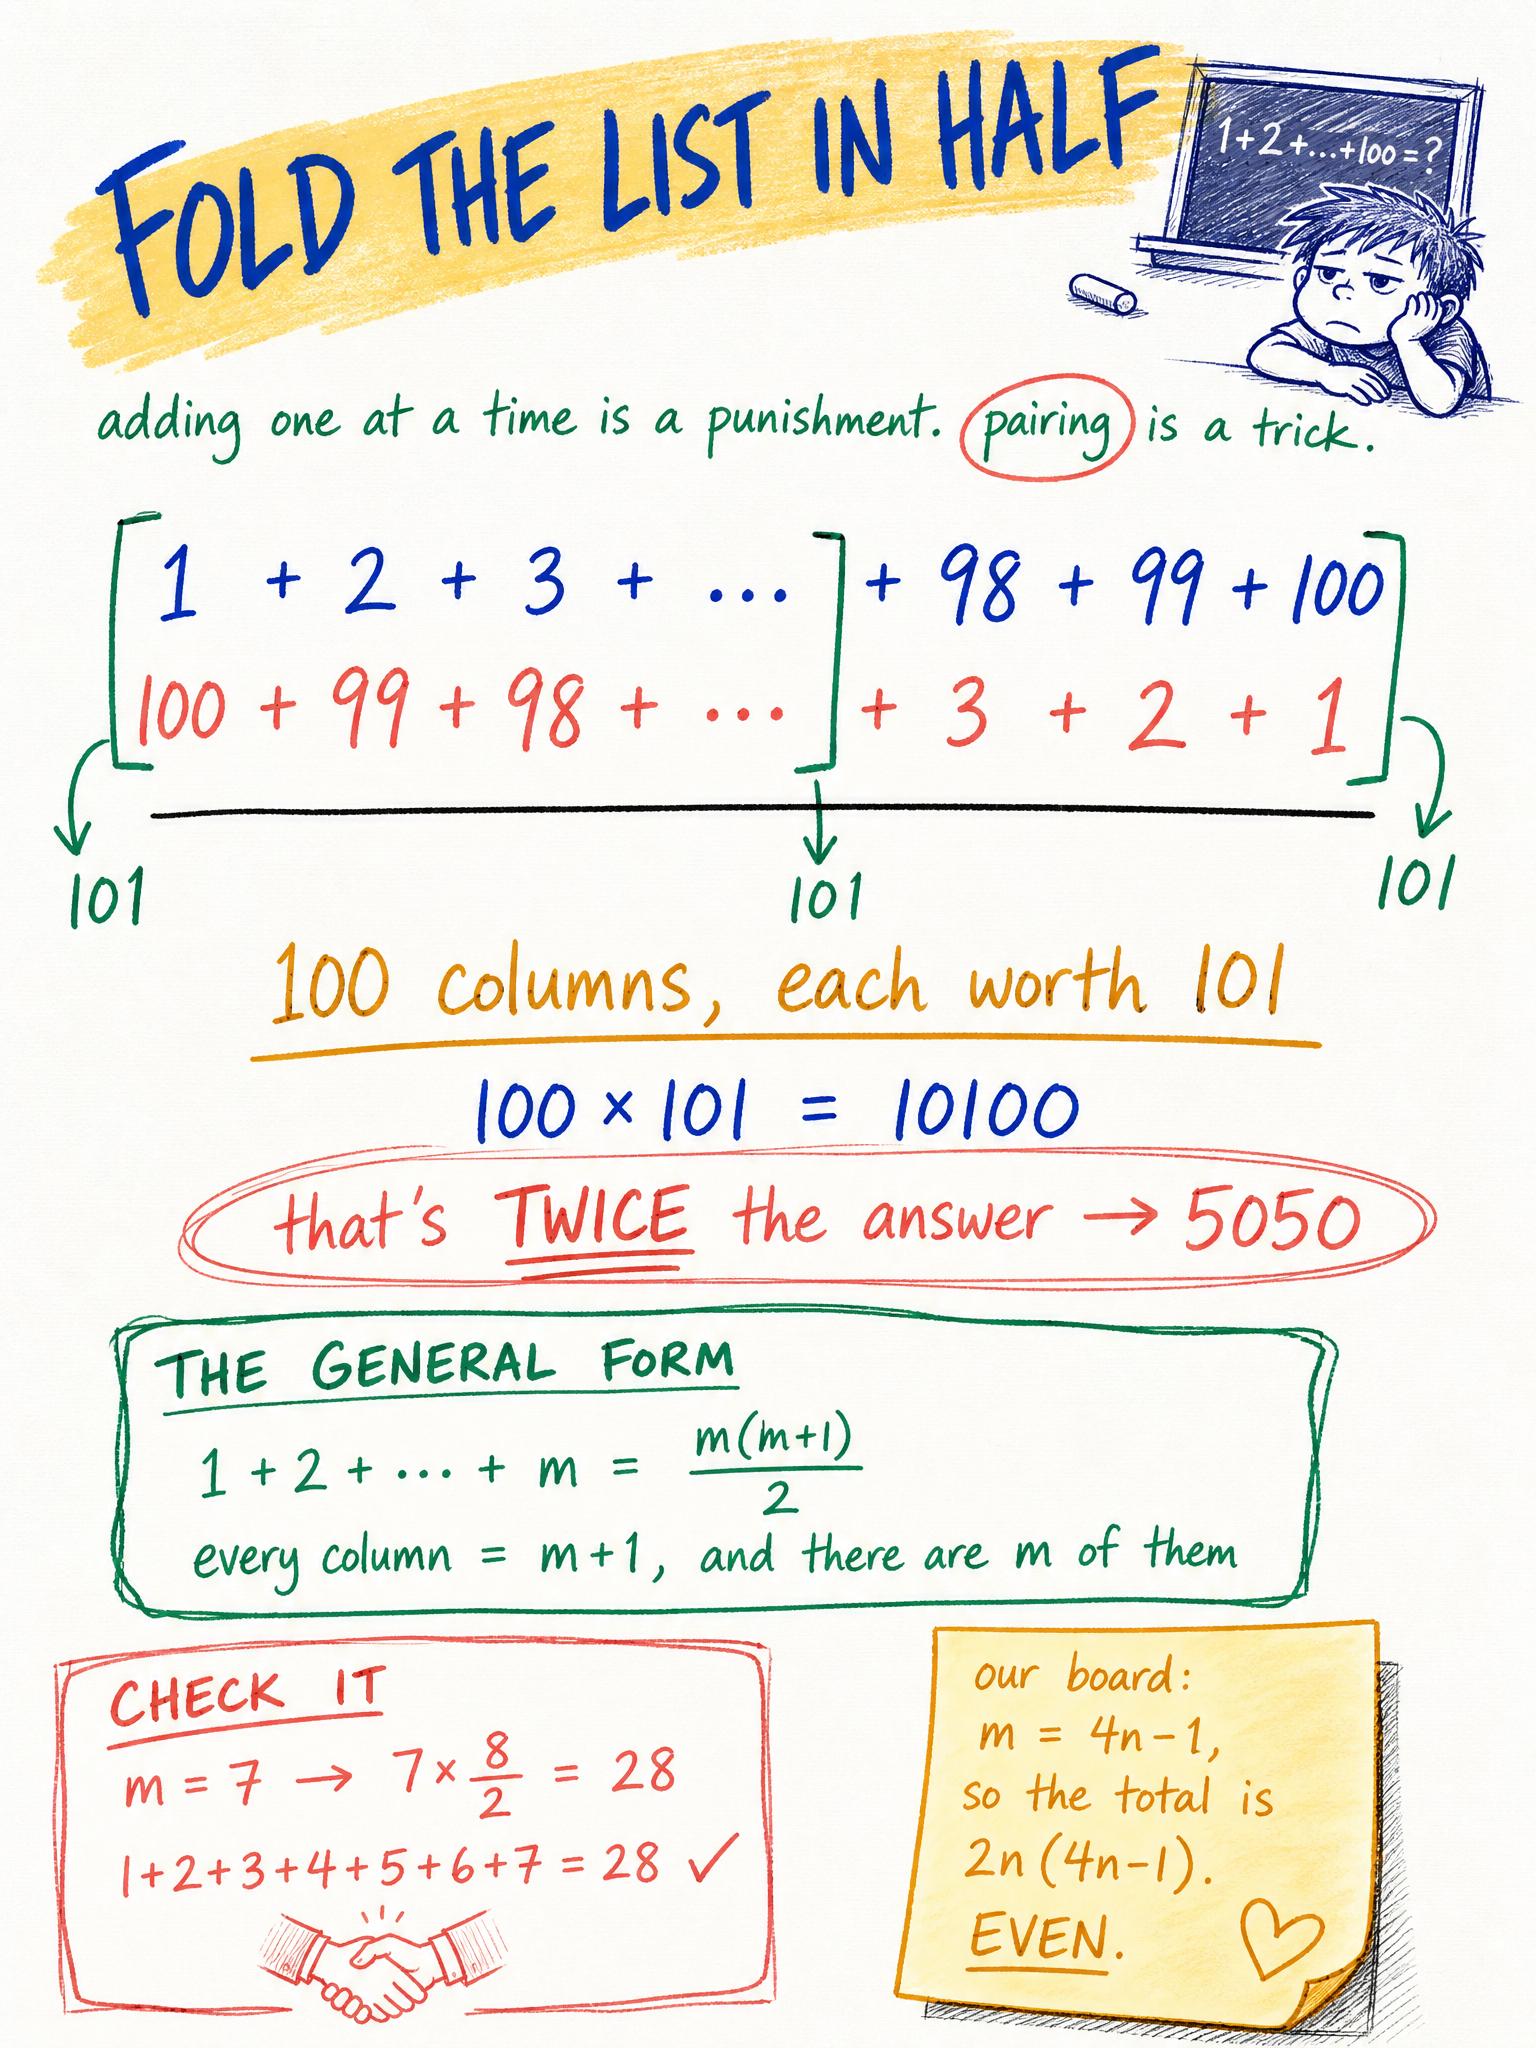 FOLD THE LIST IN HALF
1+2+...+100=?
adding one at a time is a punishment. pairing is a trick.
1 + 2 + 3 + ... + 98 + 99 + 100
100 + 99 + 98 + ... + 3 + 2 + 1
101 101 101
100 columns, each worth 101
100 × 101 = 10100
that's TWICE the answer → 5050
THE GENERAL FORM
1 + 2 + ... + m = m(m+1)/2
every column = m+1, and there are m of them
CHECK IT
m = 7 → 7 × 8/2 = 28
1+2+3+4+5+6+7 = 28 ✓
our board:
m = 4n-1,
so the total is
2n(4n-1).
EVEN.